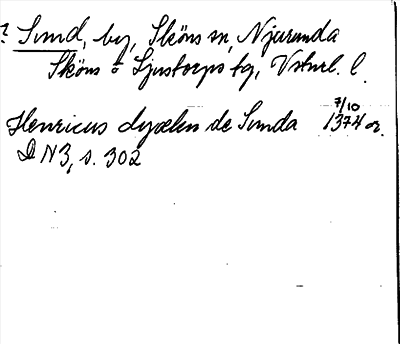 ? Sund, by, Sköns sn, Njurunda
Sköns o Ljustorps tg, Vstnrl. l.
7/10
Henricus dyækn de Sunda 1374 or.
DN3, s. 302